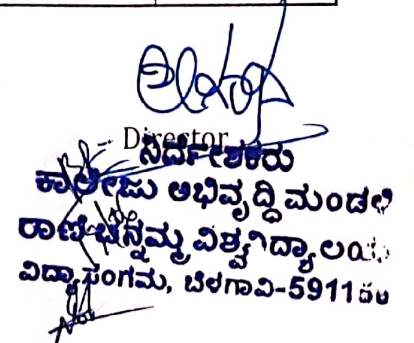 Director
ನಿರ್ದೇಶಕರು
ಕಾಲೇಜು ಅಭಿವೃದ್ಧಿ ಮಂಡಳಿ
ರಾಣಿ ಚನ್ನಮ್ಮ ವಿಶ್ವವಿದ್ಯಾಲಯ
ವಿದ್ಯಾಸಂಗಮ, ಬೆಳಗಾವಿ-5911